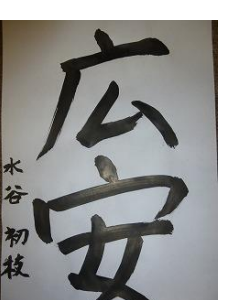 広安
水谷初枝